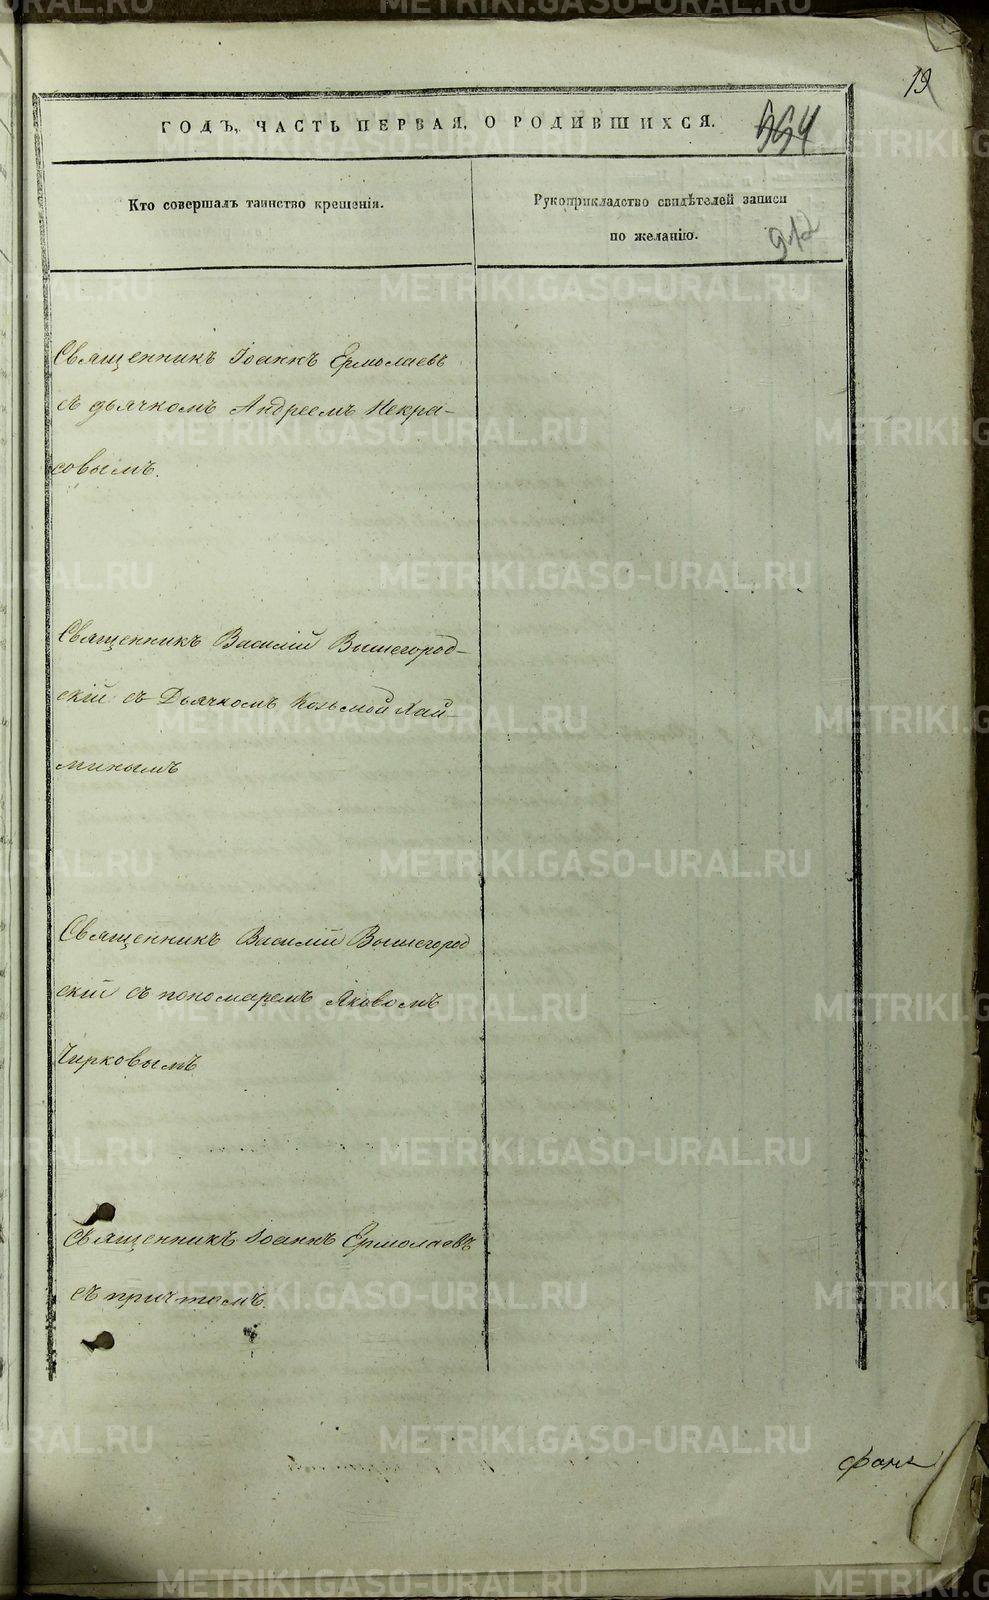 19
ГОДЪ, ЧАСТЬ ПЕРВАЯ, О РОДИВШИХСЯ.
Кто совершалъ таинство крещенія.
Рукоприкладство свидѣтелей записи
по желанію.
Священникъ Іоаннъ Ермолаевъ
съ дьячкомъ Андреемъ Некра-
совымъ.
Священникъ Василій Вышегород-
скій съ Дьячкомъ Козьмой Хай-
минымъ
Священникъ Василій Вышегород
скій съ пономаремъ Яковомъ
Чирковымъ
Священникъ Іоаннъ Ермолаевъ
съ причтомъ.
METRIKI.GASO-URAL.RU